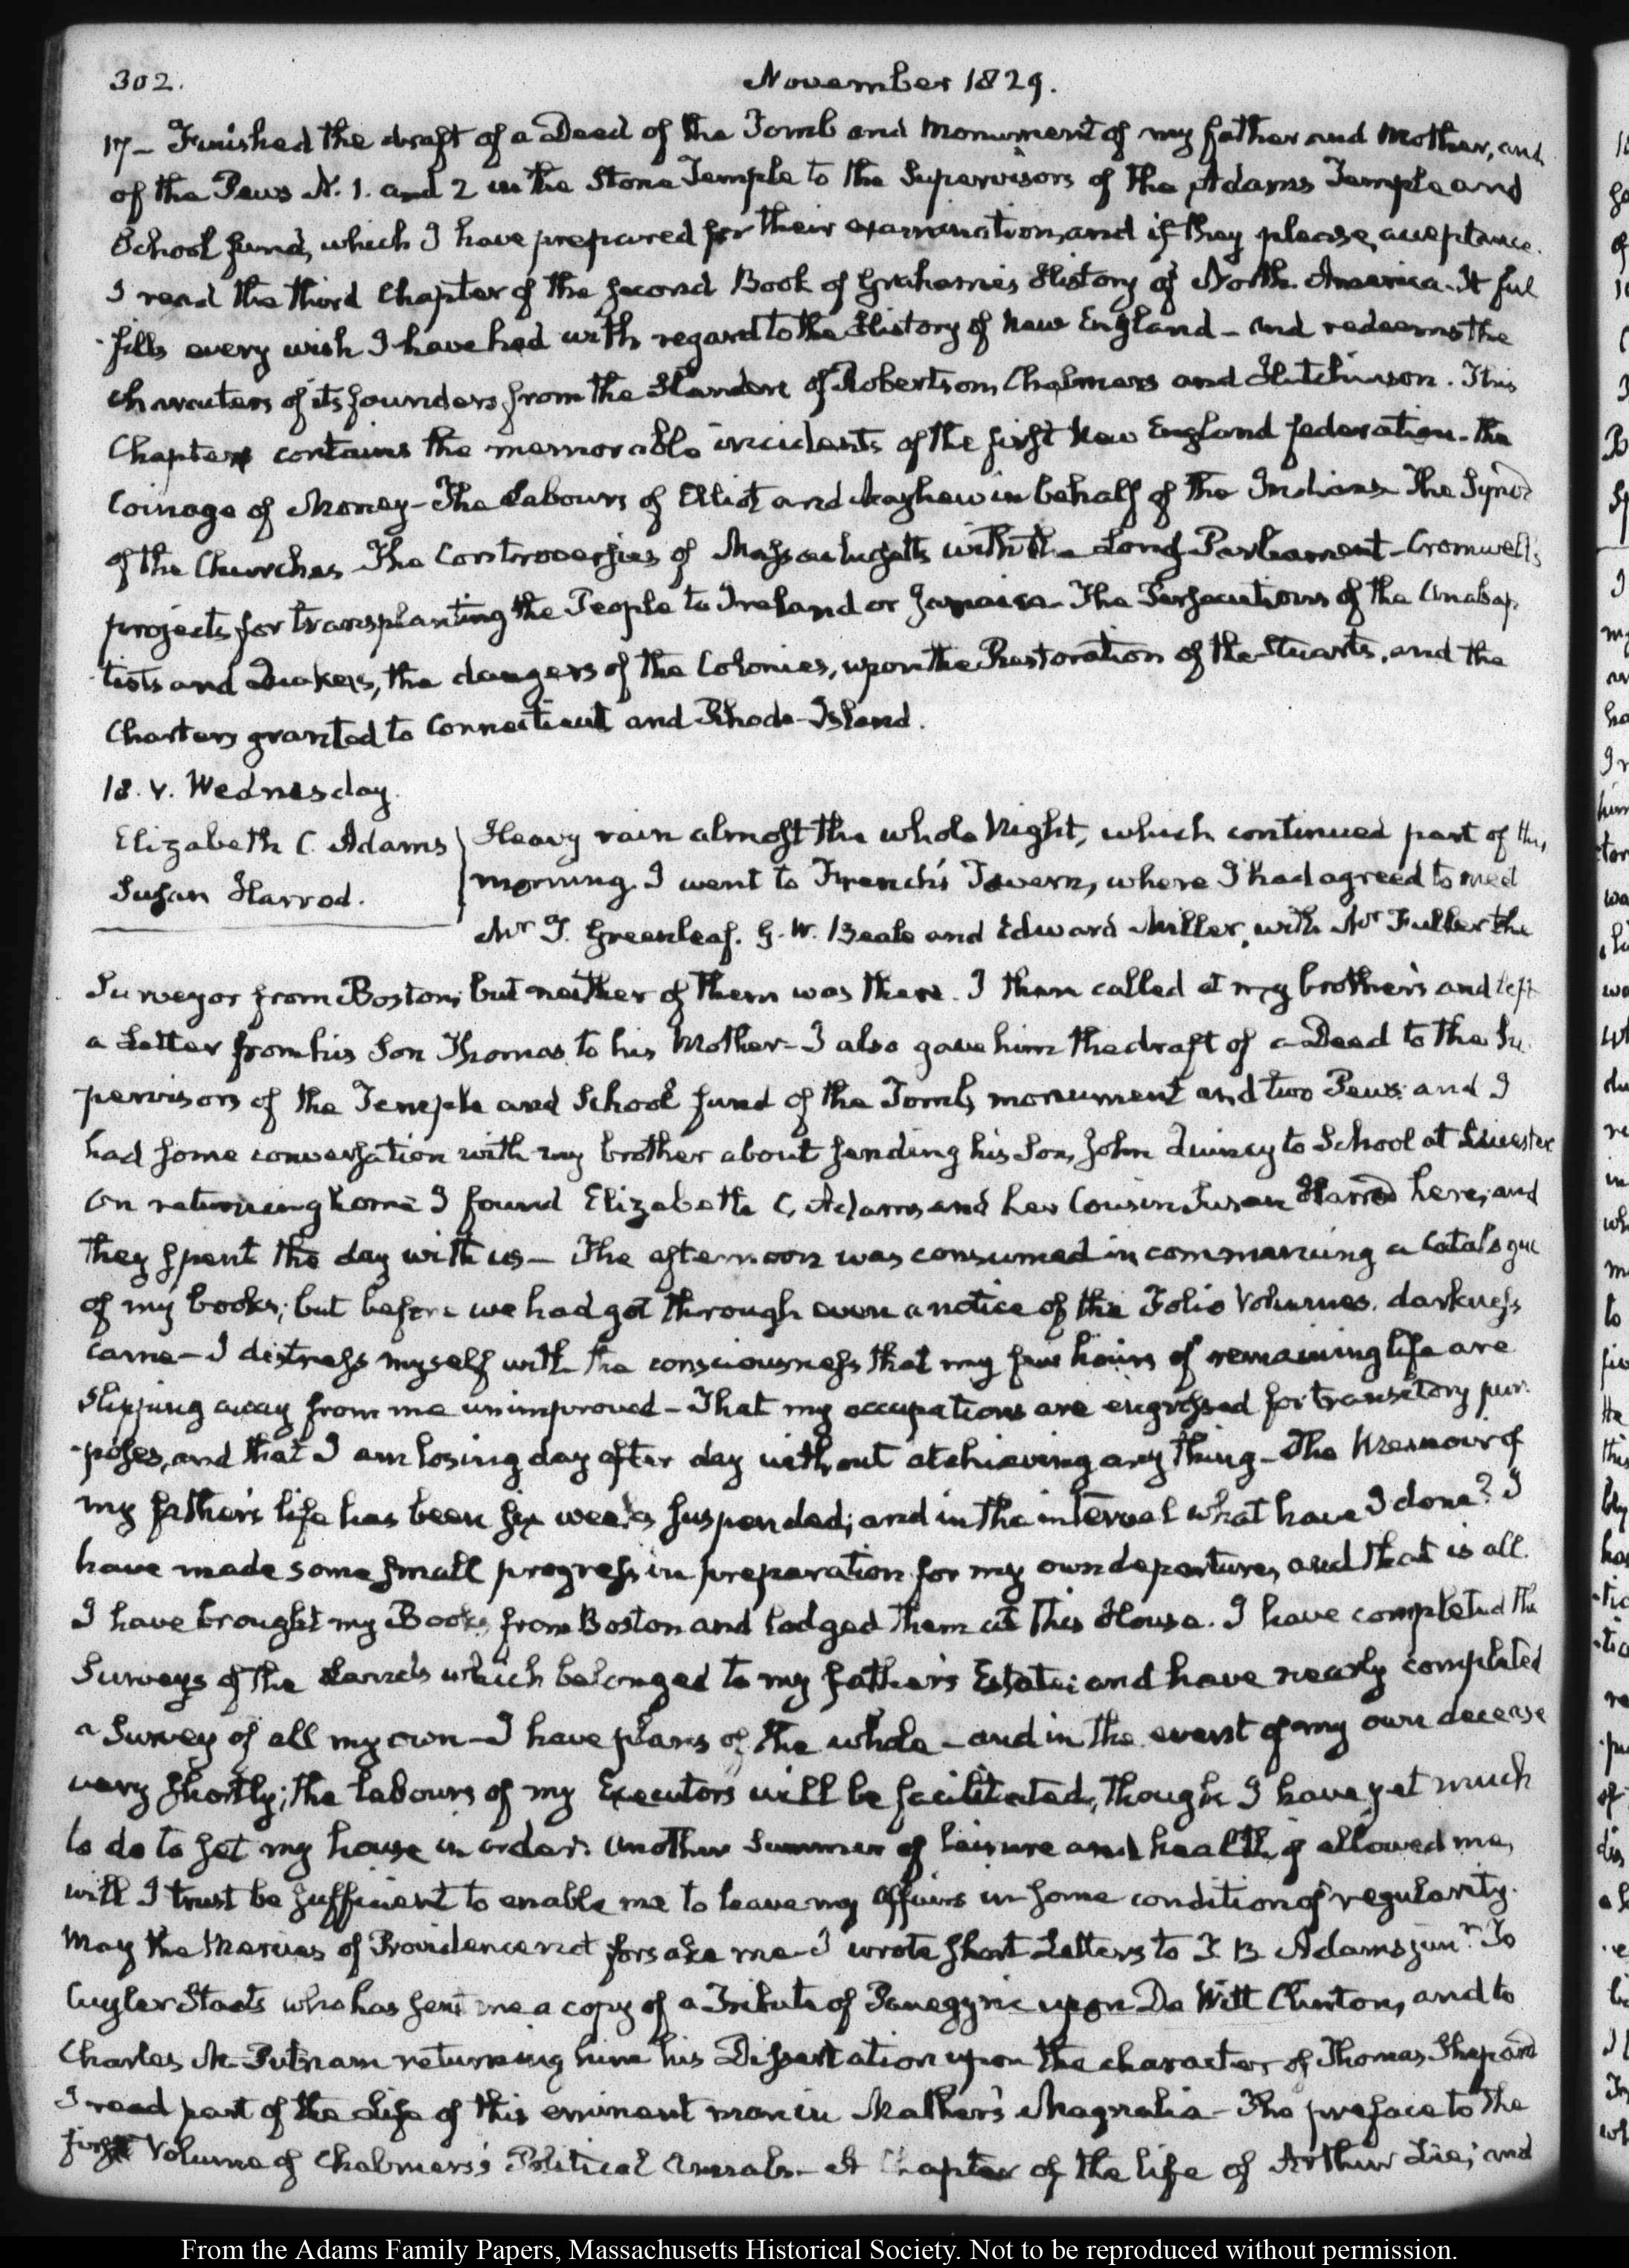 302.
November 1829.
17– Finished the draft of a Deed of the Tomb and Monument of my father and Mother, and
of the Pews N. 1. and 2 in the Stone Temple to the Supervisors of the Adams Temple and
School fund, which I have prepared for their examination, and if they please, acceptance.
I read the third Chapter of the second Book of Grahame's History of North America. It ful
-fills every wish I have had with regard to the History of New England – and redeems the
characters of its founders from the Slanders of Robertson, Chalmers and Hutchinson. This
Chapter contains the memorable incidents of the first New England federation – the
Coinage of Money – The Labours of Elliot and Mayhew in behalf of the Indians – The Synod
of the Churches – The Controversies of Massachusetts with the Long Parliament – Cromwell's
projects for transplanting the People to Ireland or Jamaica – The Persecutions of the Anabap
-tists and Quakers, the dangers of the Colonies, upon the Restoration of the Stuarts, and the
Charters granted to Connecticut and Rhode-Island.
18. V. Wednesday.
Elizabeth C. Adams
Susan Harrod.
Heavy rain almost the whole Night, which continued part of this
morning. I went to French's Tavern, where I had agreed to meet
Mr T. Greenleaf. G. W. Beale and Edward Miller, with Mr Fuller the
Surveyor from Boston; but neither of them was there. I then called at my brother's and left
a Letter from his Son Thomas to his Mother – I also gave him the draft of a Deed to the Su
pervisors of the Temple and School fund of the Tomb, monument and two Pews: and I
had some conversation with my brother about sending his Son, John Quincy to School at Leicester
On returning home I found Elizabeth C. Adams and her Cousin Susan Harrod here; and
they spent the day with us – The afternoon was consumed in commencing a Catalogue
of my books; but before we had got through even a notice of the Folio Volumes. darkness
came – I distress myself with the consciousness that my few hours of remaining life are
slipping away from me unimproved – That my occupations are engrossed for transitory pur
-poses, and that I am losing day after day without atchieving any thing – The Memoir of
my father's life has been six weeks suspended; and in the interval what have I done? I
have made some small progress in preparation for my own departure, and that is all.
I have brought my Books from Boston and lodged them at this House. I have completed the
Surveys of the Lands which belonged to my father's Estate; and have nearly completed
a Survey of all my own – I have plans of the whole – and in the event of my own decease
very shortly; the labours of my Executors will be facilitated, though I have yet much
to do to set my house in order. Another Summer of leisure and health, if allowed me,
will I trust be sufficient to enable me to leave my affairs in some condition of regularity.
May the Mercies of Providence not forsake me – I wrote short Letters to T. B. Adams junr. To
Cuyler Staats who has sent me a copy of a Tribute of Panegyric upon De Witt Clinton, and to
Charles M. Putnam returning him his Dissertation upon the character of Thomas Shepard
I read part of the Life of this eminent man in Mather's Magnalia – The preface to the
first Volume of Chalmers's Political Annals – A Chapter of the life of Arthur Lee; and
From the Adams Family Papers, Massachusetts Historical Society. Not to be reproduced without permission.